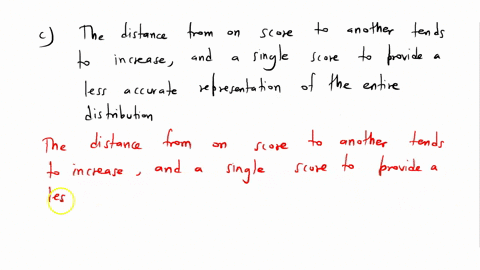 c) The distance from on score to another tends
to increase, and a single score to provide a
less accurate representation of the entire
distribution
The distance from on score to another tends
to increase, and a single score to provide a
les